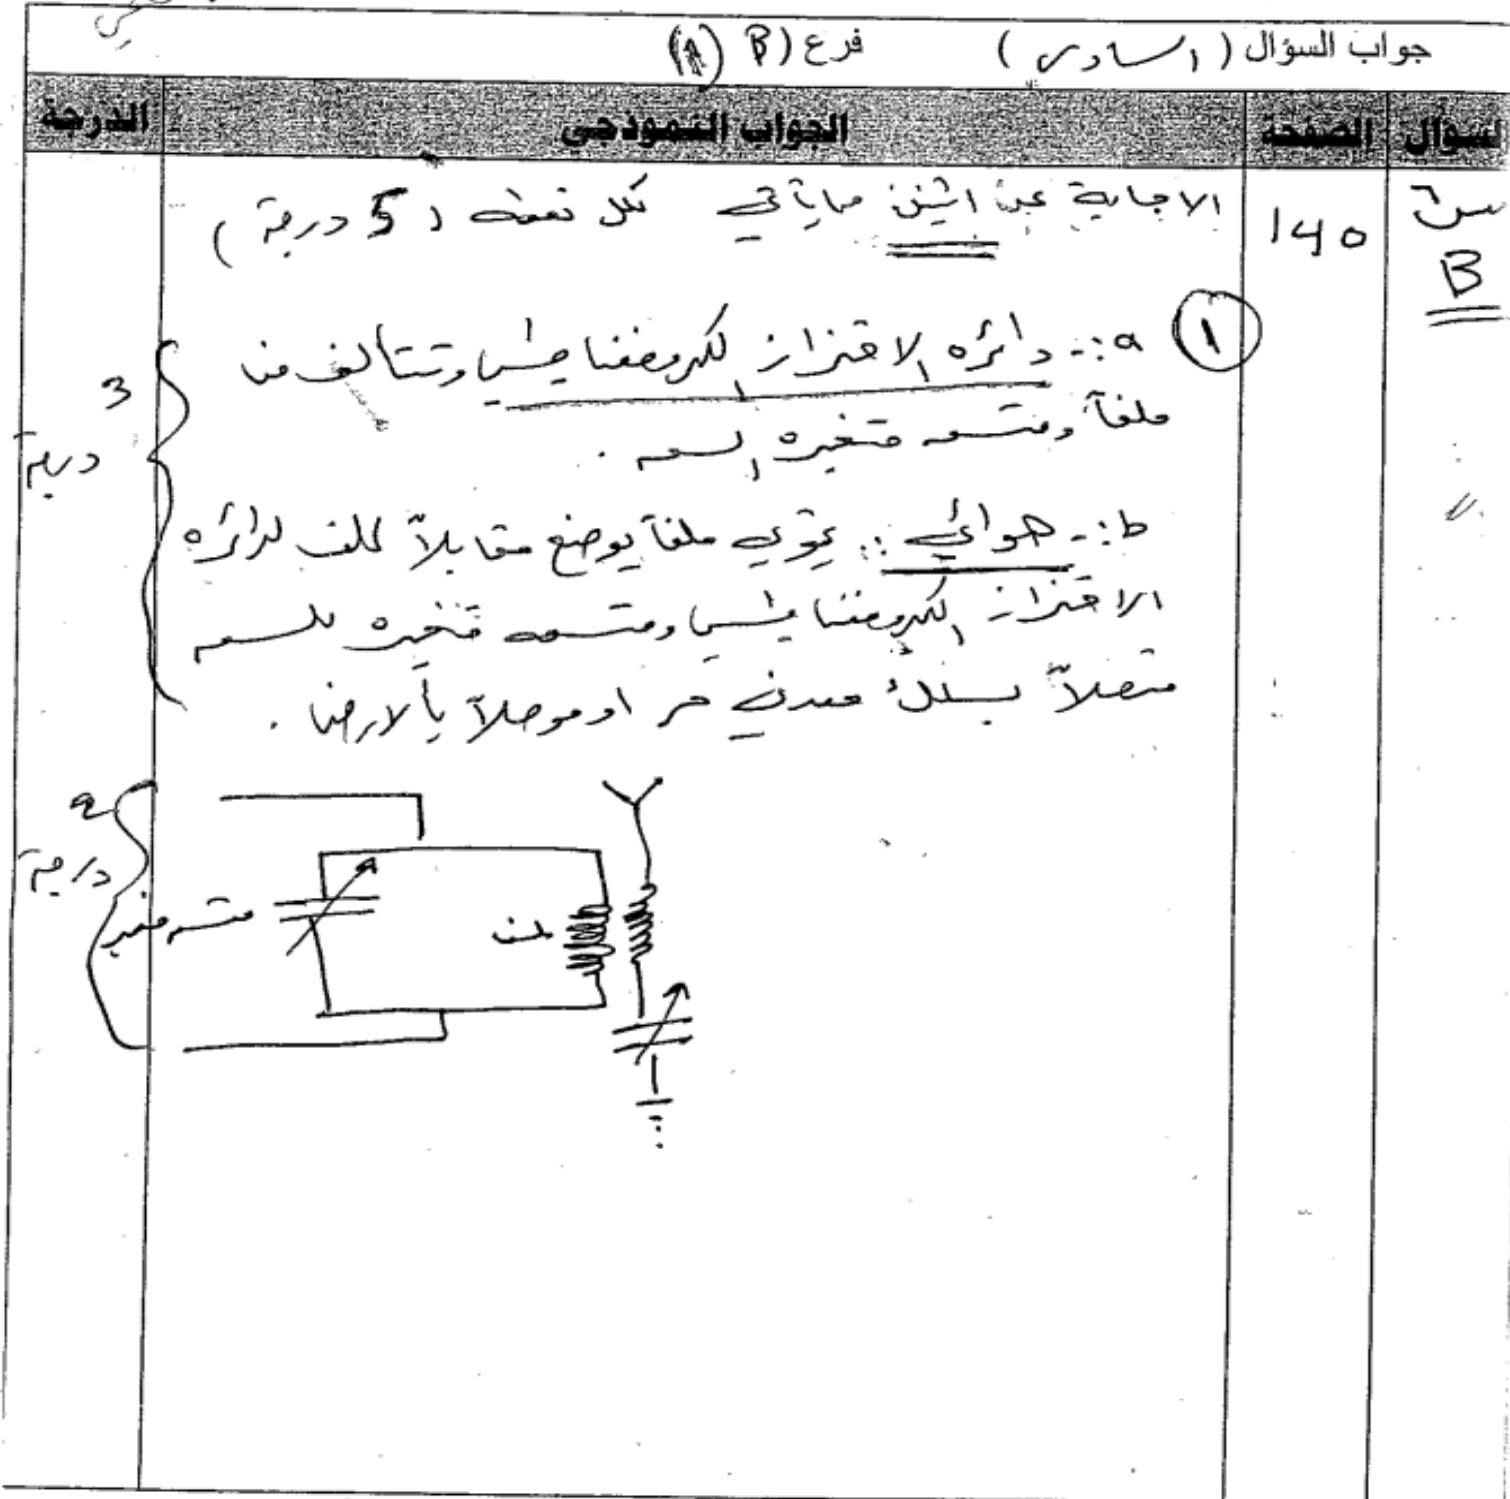 جواب السؤال ( السادس ) فرع ( B ) (1)
السؤال الصفحة الجواب النموذجي الدرجة
س٦ 140 الاجابة عن اثنين مما يأتي لكل نقطة ( 5 درجة )
B
١ a :- دائرة الاهتزاز الكهرومغناطيسي وتتألف من
ملفاً ومتسعه متغيره السعه .
3 درجة
b :- هوائي :: يحوي ملفاً يوضع مقابلاً لملف لدائرة
الاهتزاز الكهرومغناطيسي ومتسعه متغيره السعه
متصلاً بسلك معدني حر او موصلاً بالارض .
2 درجة
متسعه متغيره
ملف